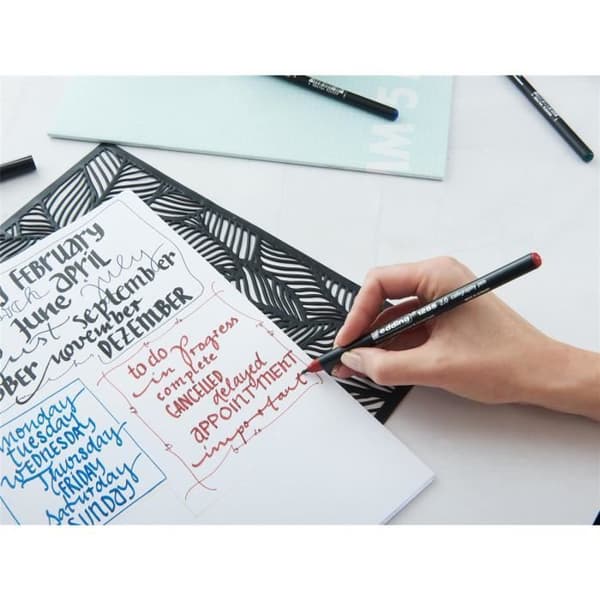 IM 5
y FEBRUARY
March
June april
july
august september
november
DEZEMBER
to do
in progress
complete
CANCELLED delayed
APPOINTMENT
important
monday
Tuesday
WEDNESDAY
Thursday
FRIDAY
Saturday
SUNDAY
edding 1255 2.0 calligraphy pen